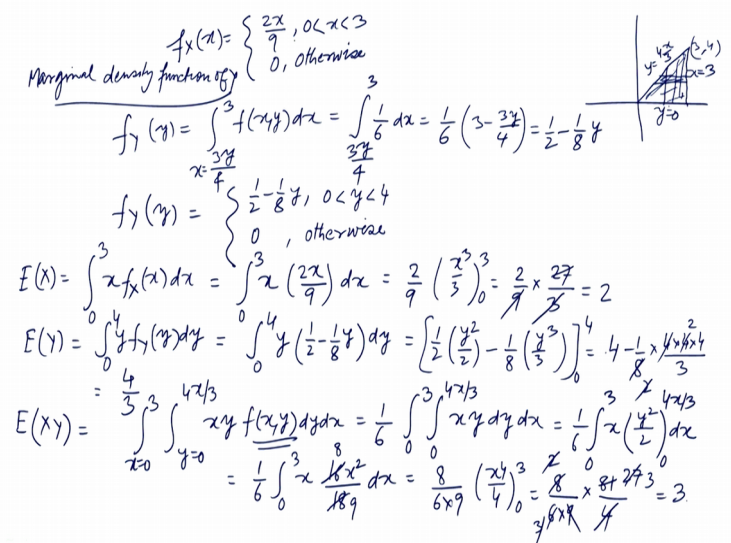 fx(x) = { 2x/9, 0<x<3
0, otherwise
Marginal density function of y
(3,4)
y=4x/3
x=3
y=0
fy(y) = ∫_{x=3y/4}^{3} f(x,y)dx = ∫_{3y/4}^{3} 1/6 dx = 1/6 (3 - 3y/4) = 1/2 - 1/8 y
fy(y) = { 1/2 - 1/8 y, 0<y<4
0, otherwise
E(X) = ∫_0^3 x fx(x) dx = ∫_0^3 x (2x/9) dx = 2/9 (x³/3)_0^3 = 2/9 × 27/3 = 2
E(Y) = ∫_0^4 y fy(y) dy = ∫_0^4 y (1/2 - 1/8 y) dy = [1/2 (y²/2) - 1/8 (y³/3)]_0^4 = 4 - 1/8 × 4×4×4/3
= 4/3
E(XY) = ∫_{x=0}^{3} ∫_{y=0}^{4x/3} xy f(x,y) dy dx = 1/6 ∫_0^3 ∫_0^{4x/3} xy dy dx = 1/6 ∫_0^3 x (y²/2)_0^{4x/3} dx
= 1/6 ∫_0^3 x 16x²/18 dx = 8/6×9 (x⁴/4)_0^3 = 8/6×9 × 81/4 = 3